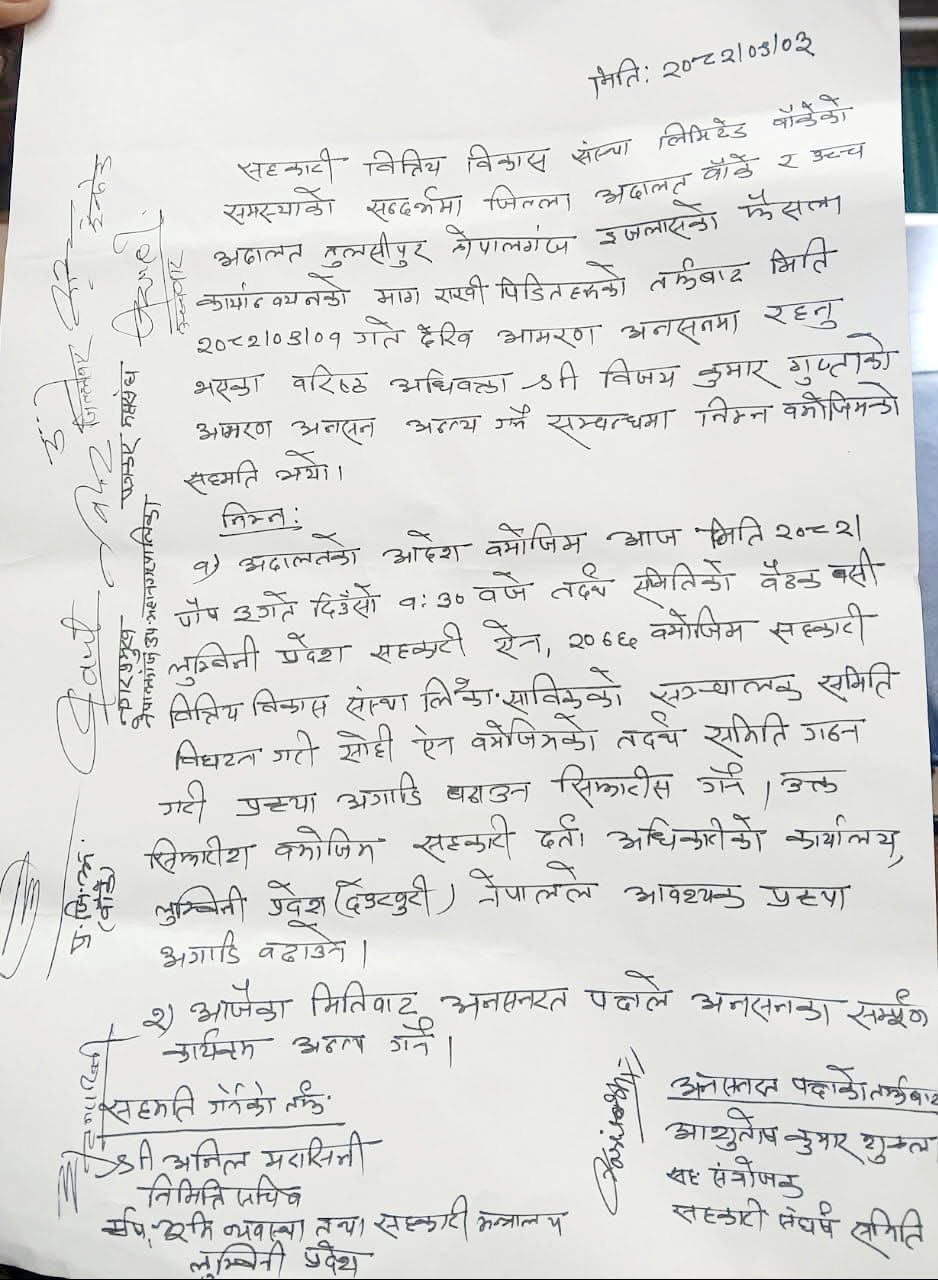 मिति: २०८२/०९/०३
सहकारी वित्तिय विकास संस्था लिमिटेड बाँकेको
समस्याको सन्दर्भमा जिल्ला अदालत बाँके र उच्च
अदालत तुलसीपुर नेपालगंज इजलासको फैसला
कार्यान्वयनको माग राखी पिडितहरुको तर्फबाट मिति
२०८२/०९/०१ गते देखि आमरण अनसनमा रहनु
भएका वरिष्ठ अधिवक्ता श्री विजय कुमार गुप्ताको
आमरण अनसन अन्त्य गर्ने सम्बन्धमा निम्न बमोजिमको
सहमति भयो।
निम्न:
१) अदालतको आदेश बमोजिम आज मिति २०८२।
पौष ३ गते दिउँसो १:३० बजे तदर्थ समितिको बैठक बसी
लुम्बिनी प्रदेश सहकारी ऐन, २०७६ बमोजिम सहकारी
वित्तिय विकास संस्था लि. साविकको सञ्चालक समिति
विघटन गरी सोही ऐन बमोजिमको तदर्थ समिति गठन
गरी प्रकृया अगाडि बढाउन सिफारीस गर्ने। उक्त
सिफारीश बमोजिम सहकारी दर्ता अधिकारीको कार्यालय,
लुम्बिनी प्रदेश (देउखुरी) नेपालले आवश्यक प्रकृया
अगाडि बढाउने।
२) आजैका मितिबाट अनसनरत पक्षले अनसनका सम्पूर्ण
कार्यक्रम अन्त्य गर्ने।
सहमति गर्नेको तर्फ:
श्री अनिल
सचिव
भूमि व्यवस्था तथा सहकारी मन्त्रालय
लुम्बिनी प्रदेश
अनसनरत पक्षको तर्फबाट
आशुतोष कुमार शुक्ल
सह संयोजक
सहकारी संघर्ष समिति
प्र.जि.अ.
(बाँके)
नगर प्रमुख
नेपालगंज उप-महानगरपालिका
पत्रकार महासंघ